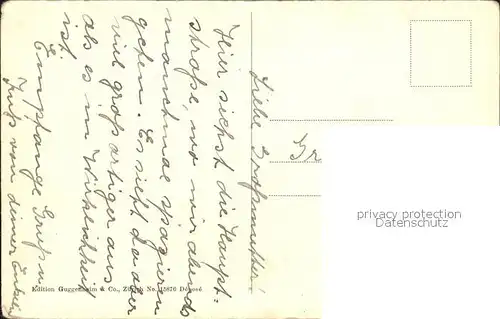 Liebe Großmutter!
Hier siehst die Haupt-
straße, wo wir abends
manchmal spazieren
gehen. Es sieht da aber
viel großartiger aus
als es in Wirklichkeit
ist.
Empfange Gruß u.
Kuß von deiner Enkelin
Edition Guggenheim & Co., Zürich No. 15870 Déposé
privacy protection
Datenschutz